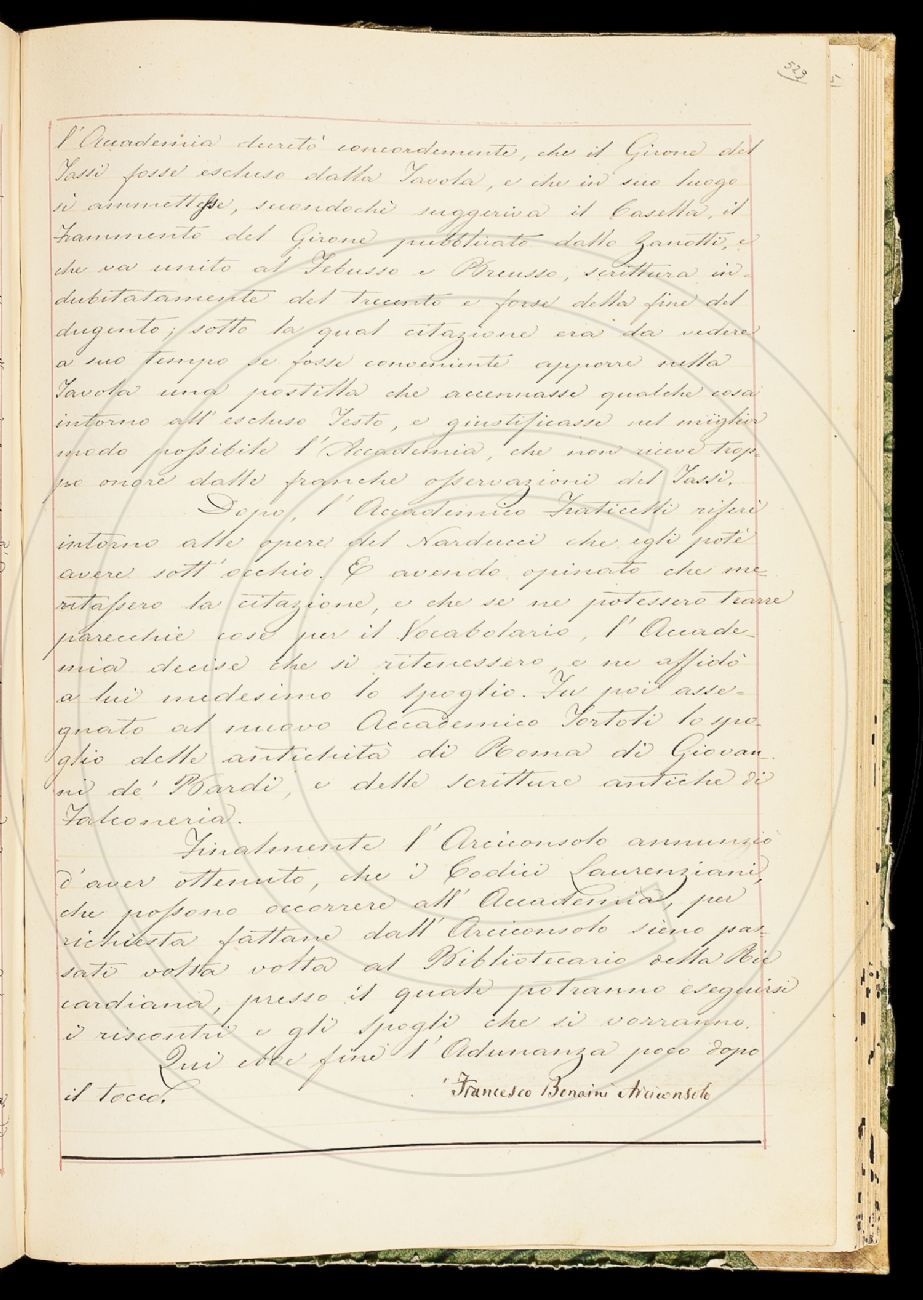 523
l'Accademia decretò concordemente, che il Girone del
Tassi fosse escluso dalla Tavola, e che in suo luogo
si ammettesse, secondochè suggeriva il Casella, il
Frammento del Girone pubblicato dallo Zanotti, e
che va unito al Febusso e Breusso, scrittura in-
dubitatamente del trecento e forse della fine del
dugento; sotto la qual citazione era da vedere
a suo tempo se fosse conveniente apporre nella
Tavola una postilla che accennasse qualche cosa
intorno all'escluso Testo, e giustificasse nel miglior
modo possibile l'Accademia, che non riceve trop-
po onore dalle franche osservazioni del Tassi.
Dopo, l'Accademico Fraticelli riferì
intorno alle opere del Narducci che egli potè
avere sott'occhio. E avendo opinato che me-
ritassero la citazione, e che se ne potessero trarre
parecchie cose per il Vocabolario, l'Accade-
mia decise che si ritenessero, e ne affidò
a lui medesimo lo spoglio. Fu poi asse-
gnato al nuovo Accademico Tortoli lo spo-
glio delle antichità di Roma di Giovan-
ni de' Bardi, e delle scritture antiche di
Falconeria.
Finalmente l'Arciconsolo annunziò
d'aver ottenuto, che i Codici Laurenziani,
che possono occorrere all'Accademia, per
richiesta fattane dall'Arciconsolo sieno pas-
sati volta volta al Bibliotecario della Ric
cardiana, presso il quale potranno eseguirsi
i riscontri e gli spogli che si vorranno.
Qui ebbe fine l'Adunanza poco dopo
il tocco.
Francesco Bonaini Arciconsolo